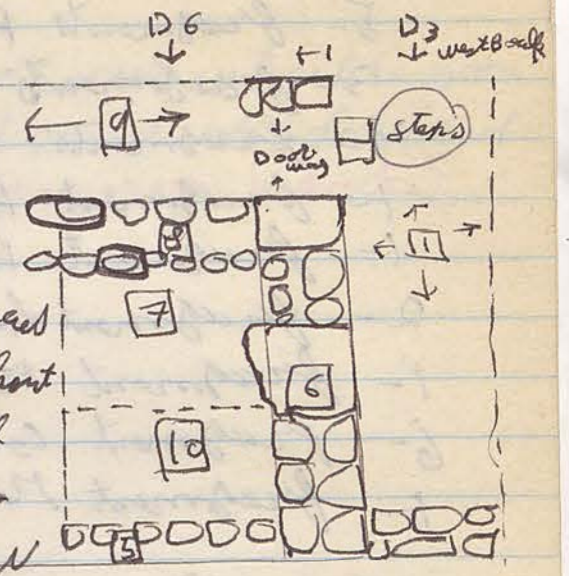 D6 D3
←1 West Baulk
↓ ↓
← 9 → steps
↓
Door
way
↑
8 ↑
← 1 →
↓
7
6
10
5
N